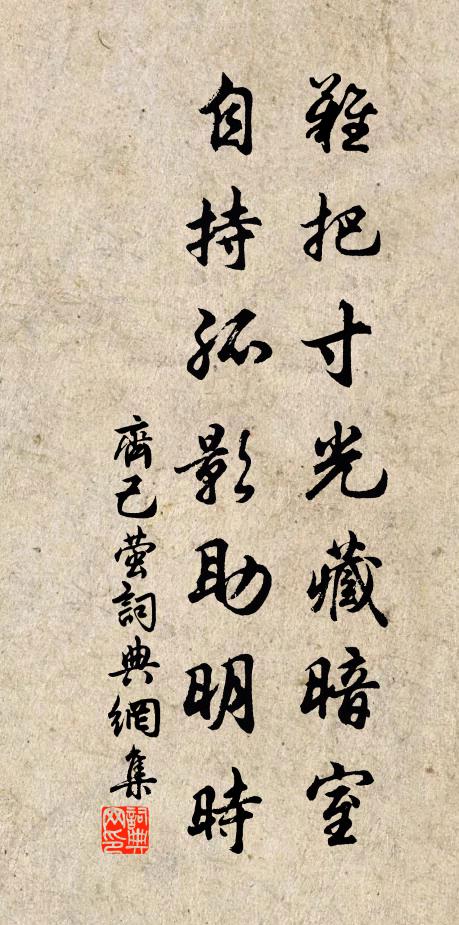 難把寸光藏暗室
自持孤影助明時
齊己螢詞典網集
詞典網印